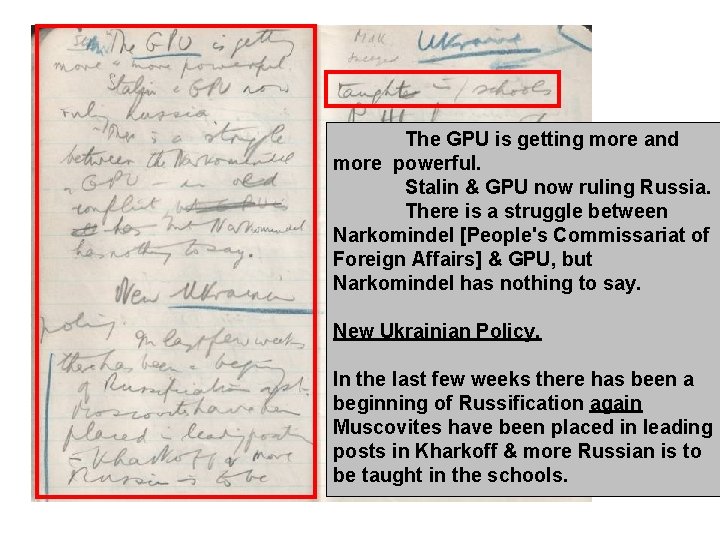 The GPU is getting
more & more powerful.
Stalin & GPU now
ruling Russia.
There is a struggle
between the Narkomindel
& GPU – an old
conflict
has but Narkomindel
has nothing to say.
New Ukrainian
policy.
In last few weeks
there has been a beging
of Russification agst.
Moscovites have been
placed in leading posts
in Kharkoff & more
Russian is to be
Ukraine
taught in / schools
The GPU is getting more and
more powerful.
Stalin & GPU now ruling Russia.
There is a struggle between
Narkomindel [People's Commissariat of
Foreign Affairs] & GPU, but
Narkomindel has nothing to say.
New Ukrainian Policy.
In the last few weeks there has been a
beginning of Russification again
Muscovites have been placed in leading
posts in Kharkoff & more Russian is to
be taught in the schools.